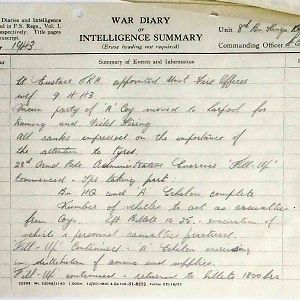 Diaries and Intelligence
in F.S. Regs., Vol. I.
Title pages
manuscript.
1943
WAR DIARY
OR
INTELLIGENCE SUMMARY
(Erase heading not required)
Unit
Commanding Officer
Summary of Events and Information
Lt appointed Unit Fire Officer
wef 9 4 43
Main party of 'A' Coy moved to for
training and Field Firing
All ranks impressed on the importance of
the attention to tyres.
28th Armd Bde Administrative Exercise 'Fill-Up'
Commenced - taking part.
Bn HQ and A Echelon complete
Number of vehicles to act as casualties
from Coys. left Billets 10.35 - evacuation of
vehicle & personnel casualties practiced.
'Fill-Up' Continued - 'A' Echelon exercising
in distribution of ammo and supplies.
'Fill-Up' continued - returned to billets 1800 hrs